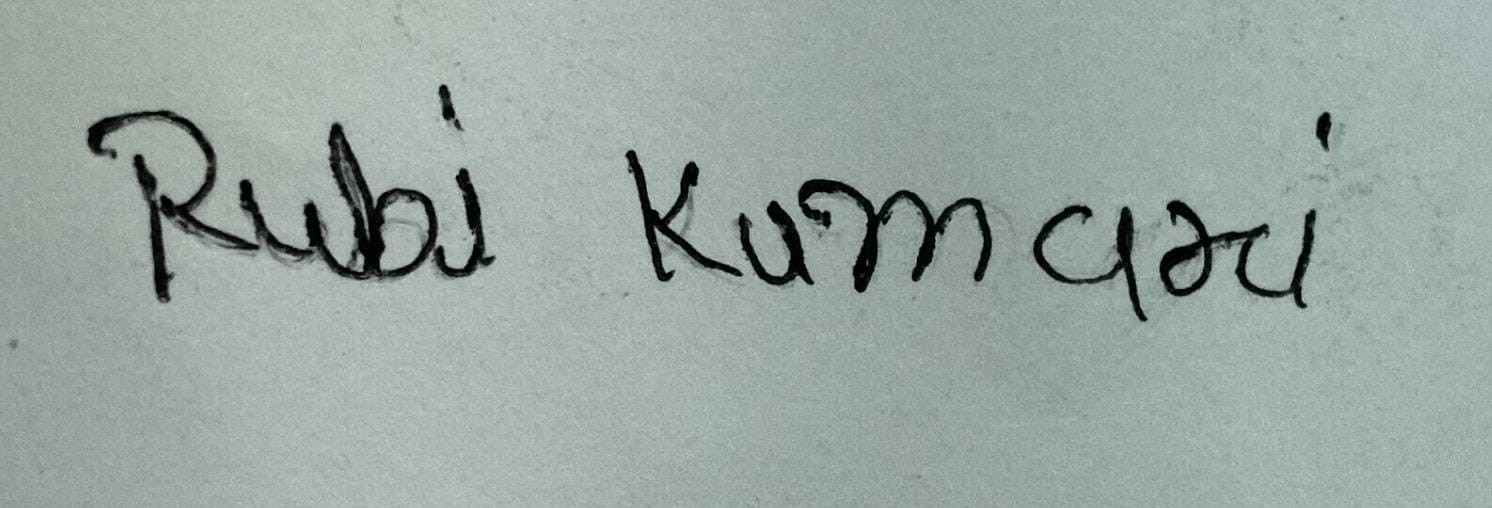 Rubi Kumari